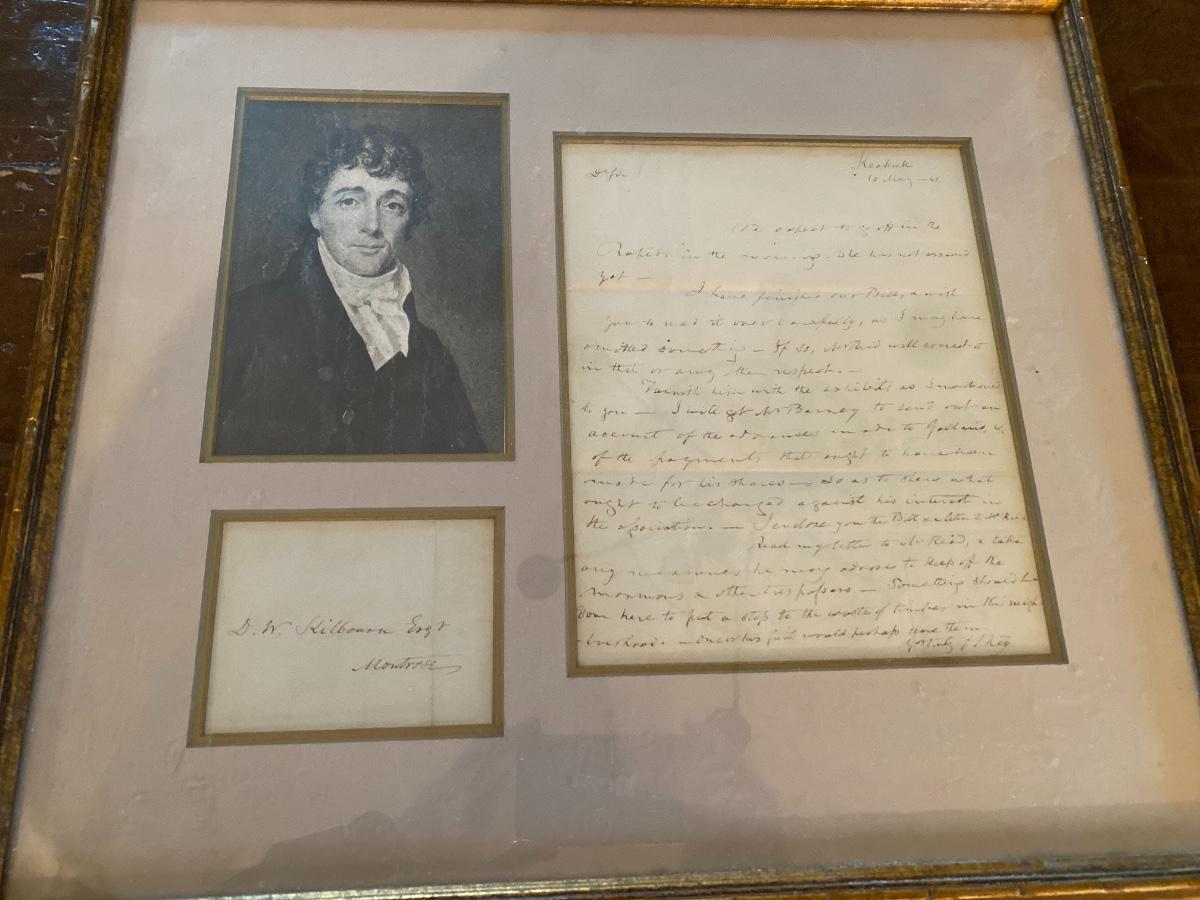 Keokuk
Dr Sir
10 May — 41
We expect to go off in the
Rapids in the morning. She has not arrived
yet —
I have finished our Bill, & wish
you to read it over carefully, as I may have
omitted something — If so, Mr Reid will correct it
in that or any other respect. —
Furnish him with the exhibits as I mentioned
to you — I will get Mr Barney to send out an
account of the advances made to Galland, &
of the payments that ought to have been
made for his shares — so as to shew what
ought to be charged against his interest in
the association. — I enclose you the Bill & a letter to Mr Reid
Read my letter to Mr Reid, & take
any measures he may advise to keep off the
mormons & other trespassers — Something should be
done here to put a stop to the waste of timber in this neigh
-bourhood. — one or two would perhaps
Yrs truly F S Key
D. W. Kilbourn Esqr
Montrose